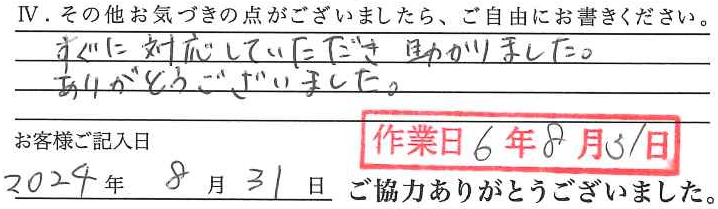 Ⅳ．その他お気づきの点がございましたら、ご自由にお書きください。
すぐに対応していただき助かりました。
ありがとうございました。
お客様ご記入日
作業日6年8月31日
2024年 8月31日 ご協力ありがとうございました。